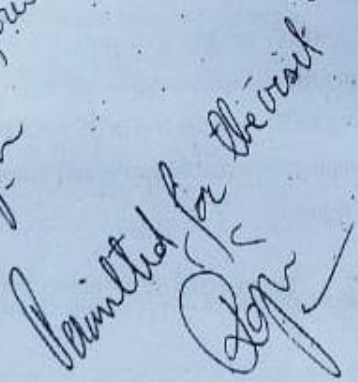 Permitted for the visit